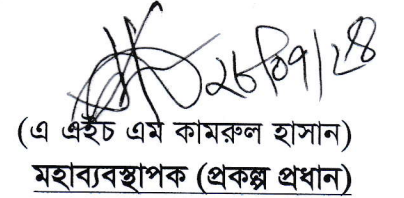 ২৮/০৭/২৪
(এ এইচ এম কামরুল হাসান)
মহাব্যবস্থাপক (প্রকল্প প্রধান)